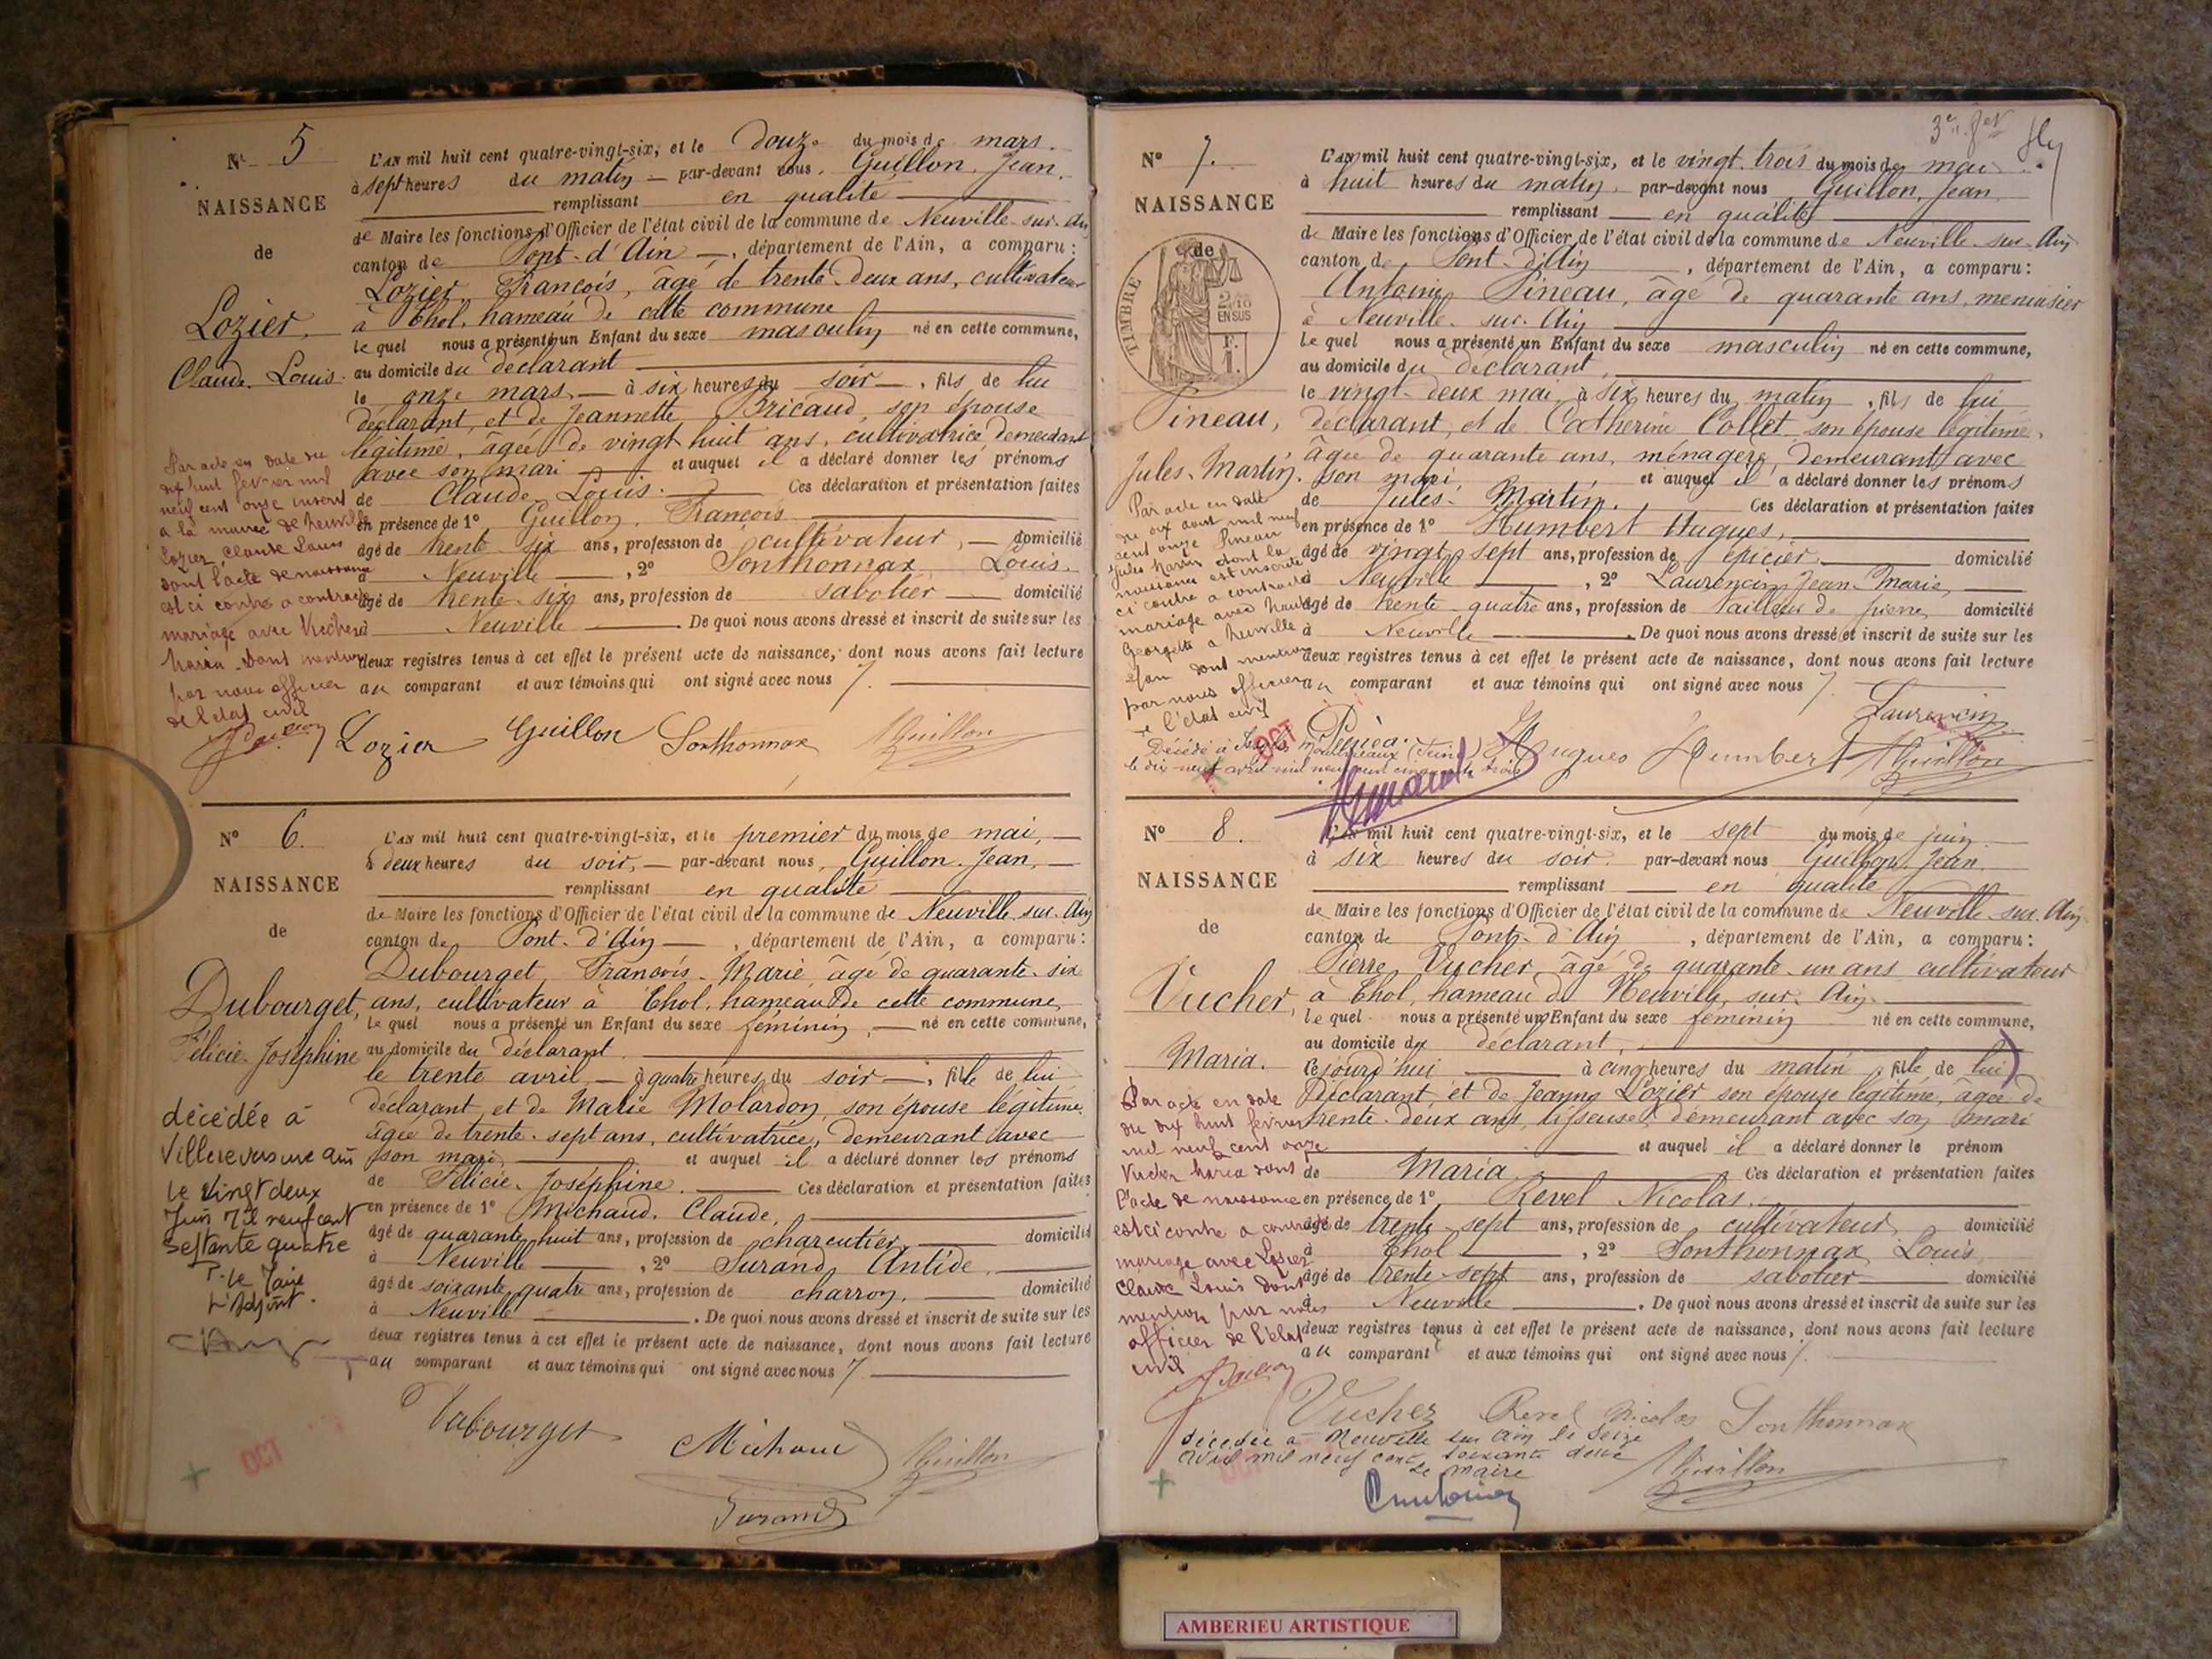 N° 5
NAISSANCE
de
Lozier,
Claude Louis.
L'an mil huit cent quatre-vingt-six, et le douze du mois de mars.
à sept heures du matin — par-devant nous, Guillon, Jean,
remplissant en qualité
de Maire les fonctions d'Officier de l'état civil de la commune de Neuville-sur-Ain
canton de Pont-d'Ain —, département de l'Ain, a comparu:
Lozier, François, âgé de trente-deux ans, cultivateur
à Thol, hameau de cette commune
le quel nous a présenté un Enfant du sexe masculin né en cette commune,
au domicile du déclarant
le onze mars, — à six heures du soir —, fils de lui
déclarant, et de Jeannette Bricaud, son épouse
légitime, âgée de vingt huit ans, cultivatrice, demeurant
avec son mari — et auquel il a déclaré donner les prénoms
de Claude Louis. Ces déclaration et présentation faites
en présence de 1° Guillon, François
âgé de trente-six ans, profession de cultivateur, — domicilié
Neuville —, 2° Sonthonnax Louis.
âgé de trente-six ans, profession de sabotier — domicilié
à Neuville — De quoi nous avons dressé et inscrit de suite sur les
deux registres tenus à cet effet le présent acte de naissance, dont nous avons fait lecture
au comparant et aux témoins qui ont signé avec nous
Par acte en date du
dix huit février mil
neuf cent onze inscrit
a la mairie de Neuville
Lozier Claude Louis
dont l'acte de naissance
est ci contre a contracté
mariage avec Vucher
Maria. Dont mention
par nous officier
de l'état civil
Lozier Guillon Sonthonnax JGuillon
N° 6.
NAISSANCE
de
Dubourget,
Félicie-Joséphine
L'an mil huit cent quatre-vingt-six, et le premier du mois de mai, —
à deux heures du soir, — par-devant nous, Guillon, Jean, —
remplissant en qualité
de Maire les fonctions d'Officier de l'état civil de la commune de Neuville-sur-Ain
canton de Pont-d'Ain —, département de l'Ain, a comparu:
Dubourget, François-Marie, âgé de quarante-six
ans, cultivateur à Thol, hameau de cette commune
le quel nous a présenté un Enfant du sexe féminin, — né en cette commune,
au domicile du déclarant
le trente avril — à quatre heures du soir —, fille de lui
déclarant, et de Marie Molardon, son épouse légitime,
âgée de trente-sept ans, cultivatrice, demeurant avec
son mari — et auquel il a déclaré donner les prénoms
de Félicie-Joséphine. — Ces déclaration et présentation faites
en présence de 1° Michaud, Claude,
âgé de quarante huit ans, profession de charcutier, — domicilié
à Neuville —, 2° Durand, Antide,
âgé de soixante-quatre ans, profession de charron, — domicilié
à Neuville — De quoi nous avons dressé et inscrit de suite sur les
deux registres tenus à cet effet le présent acte de naissance, dont nous avons fait lecture
au comparant et aux témoins qui ont signé avec nous
décédée à
Villereversure ain
le Vingt deux
Juin Mil neuf cent
septante quatre
P. le Maire
L'Adjoint.
OCT
Dubourget Michaud JGuillon
Durand
3e et
N° 7.
NAISSANCE
de
TIMBRE
2/10
EN SUS
F.
1.
Pineau,
Jules-Martin.
L'an mil huit cent quatre-vingt-six, et le vingt-trois du mois de mai
à huit heures du matin, par-devant nous Guillon, Jean
remplissant — en qualité
de Maire les fonctions d'Officier de l'état civil de la commune de Neuville-sur-Ain
canton de Pont-d'Ain, département de l'Ain, a comparu:
Antoine Pineau, âgé de quarante ans, menuisier
à Neuville-sur-Ain
le quel nous a présenté un Enfant du sexe masculin né en cette commune,
au domicile du déclarant,
le vingt-deux mai, à six heures du matin, fils de lui
déclarant, et de Catherine Collet son épouse légitime,
âgée de quarante ans, ménagère, demeurant avec
son mari, et auquel il a déclaré donner les prénoms
de Jules Martin. Ces déclaration et présentation faites
en présence de 1° Humbert Hugues,
âgé de vingt-sept ans, profession de épicier, domicilié
à Neuville —, 2° Laurencin Jean-Marie,
âgé de trente-quatre ans, profession de tailleur de pierre, domicilié
à Neuville — De quoi nous avons dressé et inscrit de suite sur les
deux registres tenus à cet effet le présent acte de naissance, dont nous avons fait lecture
au comparant et aux témoins qui ont signé avec nous
Par acte en date
du dix aout mil neuf
cent onze Pineau
Jules Martin dont la
naissance est inscrite
ci contre a contracté
mariage avec
Georgette a Neuville
dont mention
par nous officier
de l'état civil
OCT
Laurencin
Hugues Humbert JGuillon
Décédé à
le dix-neuf avril mil neuf cent cinquante trois
N° 8.
NAISSANCE
de
Vucher,
Maria.
L'an mil huit cent quatre-vingt-six, et le sept du mois de juin
à six heures du soir. par-devant nous Guillon Jean
remplissant — en qualité
de Maire les fonctions d'Officier de l'état civil de la commune de Neuville-sur-Ain
canton de Pont-d'Ain, département de l'Ain, a comparu:
Pierre Vucher âgé de quarante-un ans cultivateur
à Thol, hameau de Neuville-sur-Ain
le quel nous a présenté un Enfant du sexe féminin né en cette commune,
au domicile du déclarant,
cejourd'hui — à cinq heures du matin, fille de lui
déclarant et de Jeanne Lozier son épouse légitime, âgée de
trente-deux ans, tisseuse, demeurant avec son mari
et auquel il a déclaré donner le prénom
de Maria Ces déclaration et présentation faites
en présence de 1° Revel Nicolas.
âgé de trente-sept ans, profession de cultivateur, domicilié
à Thol —, 2° Sonthonnax Louis
âgé de trente-sept ans, profession de sabotier — domicilié
à Neuville — De quoi nous avons dressé et inscrit de suite sur les
deux registres tenus à cet effet le présent acte de naissance, dont nous avons fait lecture
au comparant et aux témoins qui ont signé avec nous
Par acte en date
du dix huit février
mil neuf cent onze
Vucher Maria dont
l'acte de naissance
est ci contre a contracté
mariage avec Lozier
Claude Louis dont
mention par nous
officier de l'état
civil
Vucher Revel Nicolas Sonthonnax
décédée à Neuville sur Ain le seize
avril mil neuf cent soixante deux
Le Maire
JGuillon
AMBERIEU ARTISTIQUE